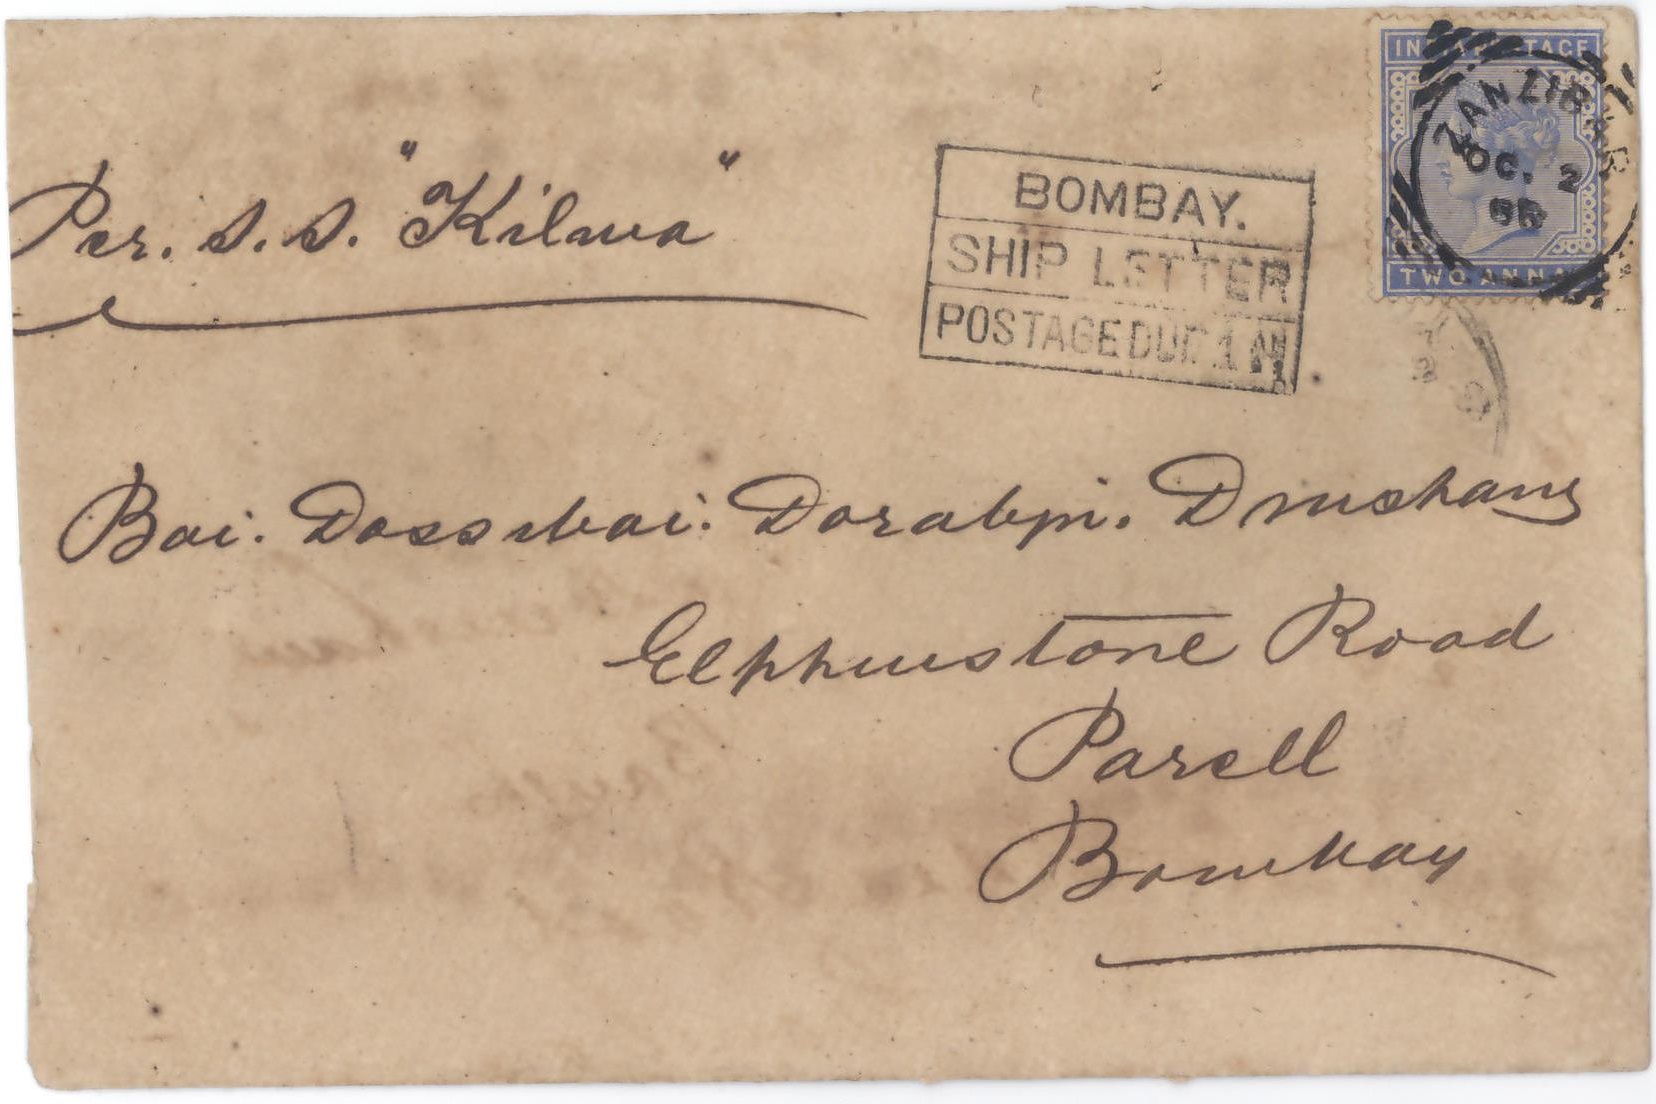 INDIA POSTAGE
ZANZIBAR
OC. 2
TWO ANNAS
BOMBAY.
SHIP LETTER
POSTAGE DUE 1 AN
Per. S. S. "Kilwa"
Bai. Dossibai. Dorabji.
Elphinstone Road
Parell
Bombay